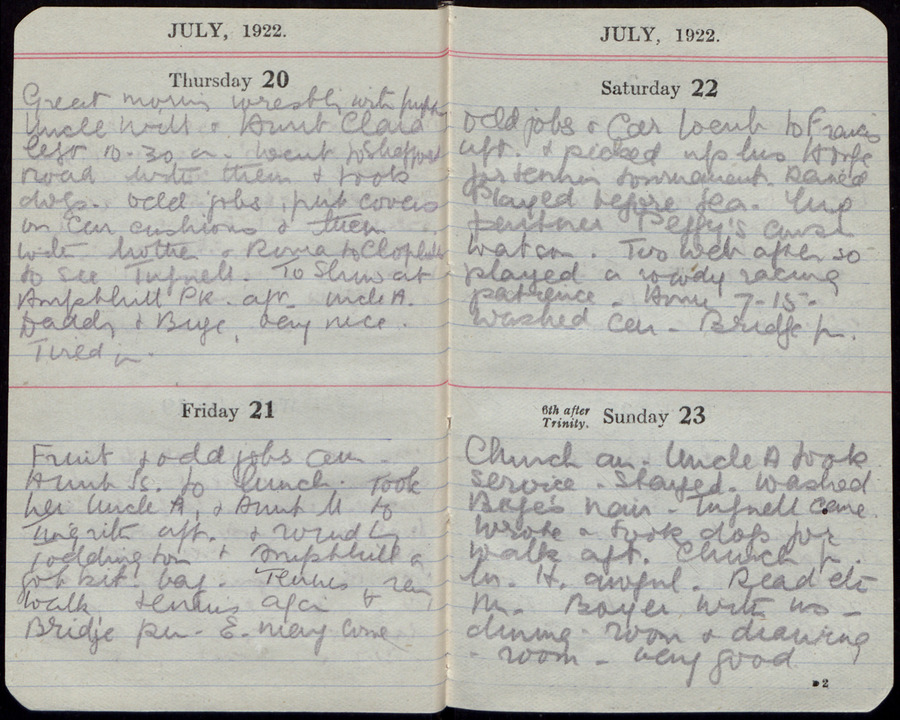 JULY, 1922.
Thursday 20
Great morning wrestling with
Uncle Will & Aunt Clara
left 10-30 a. went to Shefford
road with them & took
dogs. odd jobs, put covers
on Car cushions & then
with Mother & Roma to
to see Tufnell. To Show at
Ampthill Pk. aft. Uncle A.
Daddy & Buge, very nice.
Tired
Friday 21
Fruit & odd jobs car
Aunt Is. to lunch. Took
her Uncle A, & Aunt M to
aft. & round by
Toddington & Ampthill &
got kit bag. Tennis
walk tennis
Bridge pm - E. may come
JULY, 1922.
Saturday 22
odd jobs & Car went to Francis
aft. & picked up his
for tennis tournament. Rained
Played before tea. My
partner Peffy's
Watson. Two wet after so
played a rowdy racing
patience - Home 7-15-
Washed car - Bridge
6th after Trinity. Sunday 23
Church am. Uncle A took
service. Stayed. Washed
Buge's hair - Tufnell came.
Wrote & took dogs for
walk aft. Church
H. awful. Read etc
Boyer with us -
dining room & drawing
- room - very good
2